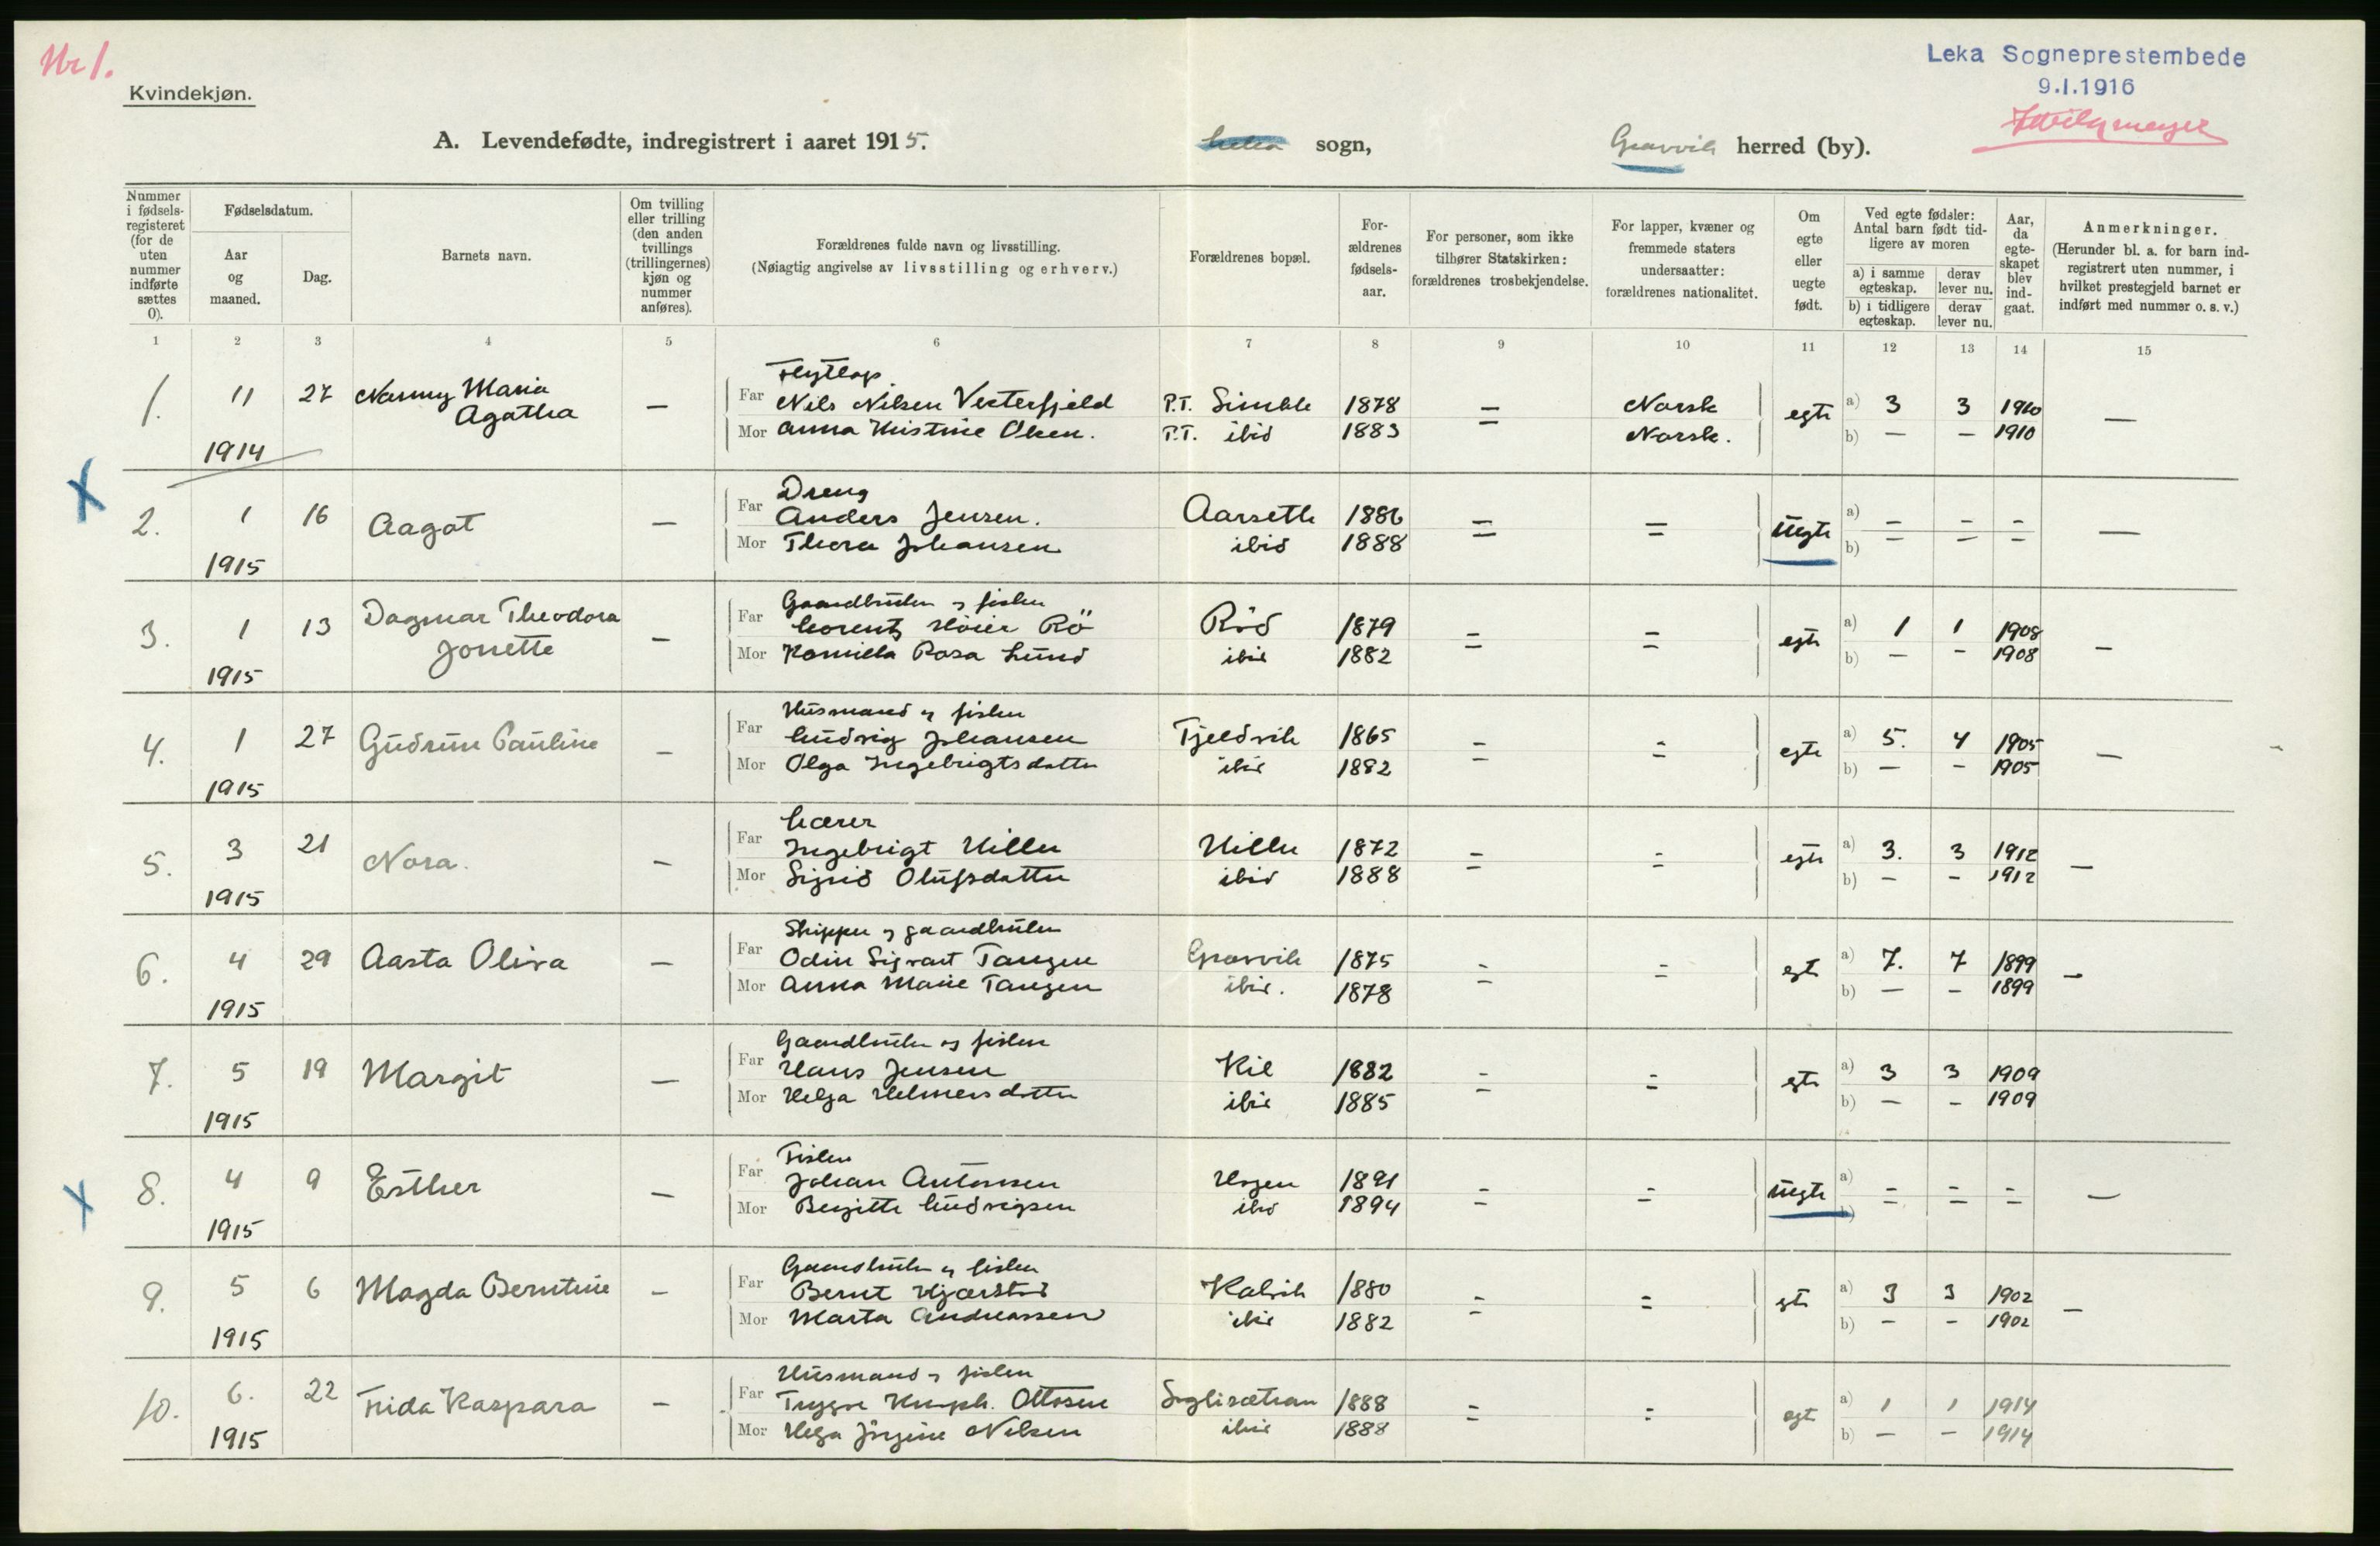 Nr 1.
Leka Sogneprestembede
9.I.1916
Kvindekjøn.
A. Levendefødte, indregistrert i aaret 1915. Leka sogn, Gravvik herred (by).
Nummer i fødsels-registeret (for de uten nummer indførte sættes 0).
Fødselsdatum.
Aar og maaned.
Dag.
Barnets navn.
Om tvilling eller trilling (den anden tvillings (trillingernes) kjøn og nummer anføres).
Forældrenes fulde navn og livsstilling.
(Nøiagtig angivelse av livsstilling og erhverv.)
Forældrenes bopæl.
For-ældrenes fødsels-aar.
For personer, som ikke tilhører Statskirken: forældrenes trosbekjendelse.
For lapper, kvæner og fremmede staters undersaatter: forældrenes nationalitet.
Om egte eller uegte født.
Ved egte fødsler: Antal barn født tid-ligere av moren
a) i samme egteskap. derav lever nu.
b) i tidligere egteskap. derav lever nu.
Aar, da egte-skapet blev ind-gaat.
Anmerkninger.
(Herunder bl. a. for barn ind-registrert uten nummer, i hvilket prestegjeld barnet er indført med nummer o. s. v.)
1 2 3 4 5 6 7 8 9 10 11 12 13 14 15
Flytlap
1. 11 27 Nanny Maria Agatha — Far Nils Nilsen Vesterfjeld P.T. Simle 1878 = Norsk egte a) 3 3 1910 —
1914 Mor Anna Kristine Olsen. P.T. ibid 1883 Norsk. b) — — 1910
Dreng
2. 1 16 Aagot — Far Anders Jensen. Aarseth 1886 = = uegte a) = = = —
1915 Mor Thora Johansen ibid 1888 b)
Gaardbruker og fisker
3. 1 13 Dagmar Theodora Jonette — Far Lorentz Høier Rö Röd 1879 = = egte a) 1 1 1908 —
1915 Mor Kamilla Rosa Lund ibid 1882 b) — — 1908
Husmand og fisker
4. 1 27 Gudrun Pauline — Far Ludvig Johansen Tjeldvik 1865 = = egte a) 5. 4 1905 —
1915 Mor Olga Ingebrigtsdatter ibid 1882 b) — — 1905
Lærer
5. 3 21 Nora. — Far Ingebrigt Hiller Hiller 1872 = = egte a) 3. 3 1912 —
1915 Mor Sigrid Olufsdatter ibid 1888 b) — — 1912
Skipper og gaardbruker
6. 4 29 Aasta Oliva — Far Odin Sigvart Tangen Gravvik 1875 = = egte a) 7. 7 1899 —
1915 Mor Anna Marie Tangen ibid. 1878 b) — — 1899
Gaardbruker og fisker
7. 5 19 Margit — Far Hans Jensen Kil 1882 = = egte a) 3 3 1909
1915 Mor Helga Helmersdatter ibid 1885 b) — — 1909
Fisker
8. 4 9 Esther — Far Johan Antonsen 1891 = = uegte a) = = = —
1915 Mor Bergitte Ludvigsen ibid 1894 b)
Gaardbruker og fisker
9. 5 6 Magda Berntine — Far Bernt Kalvik 1880 = = egte a) 3 3 1902 —
1915 Mor Marta Andreassen ibid 1882 b) — — 1902
Husmand og fisker
10. 6. 22 Frida Kaspara — Far Trygve Ottosen 1888 = = egte a) 1 1 1914
1915 Mor Helga Jörgine Nilsen ibid 1888 b) — — 1914